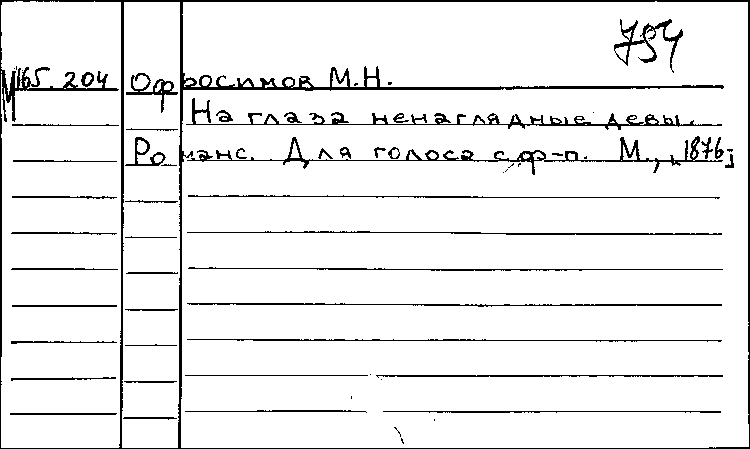 794
М165.204 Офросимов М.Н.
На глаза ненаглядные девы.
Романс. Для голоса с ф-п. М., [1876]